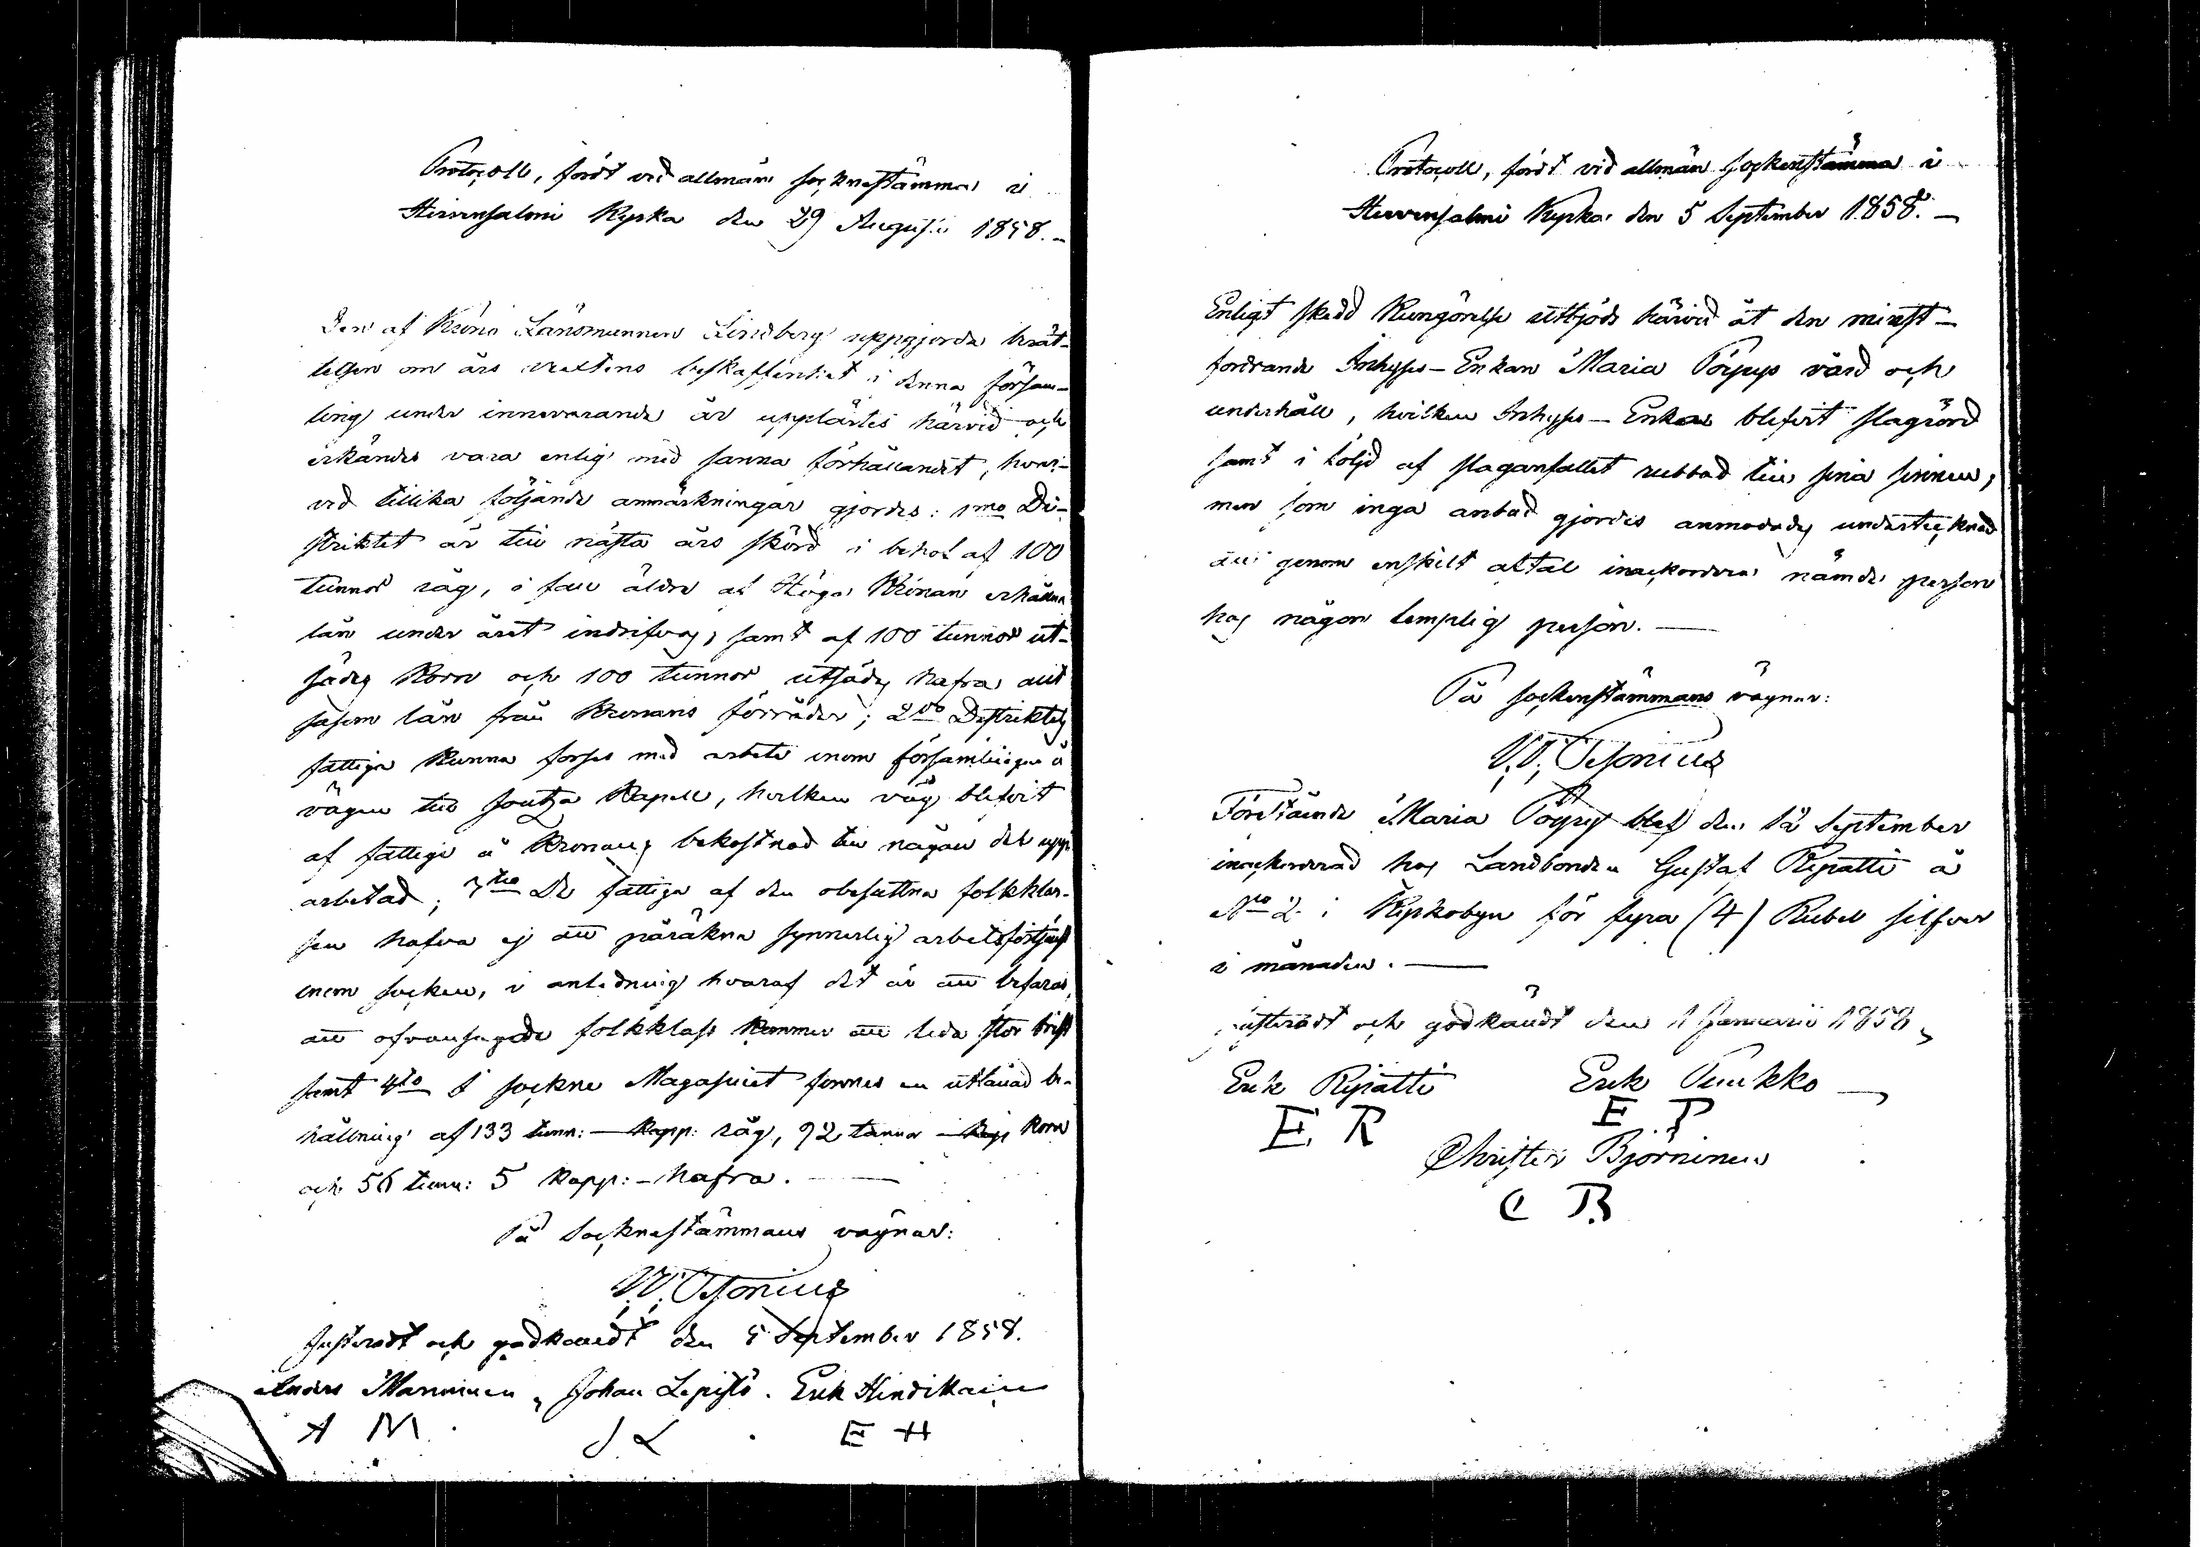 Protocoll, fördt vid allmän socknestämma i
Hirvensalmi Kyrka den 29 Augusti 1858.
Den af Krono Länsmannen Lindberg uppgjorda berät-
telsen om års vextens beskaffenhet i denna försam-
ling under innevarande år upplästes härvid och
erkändes vara enlig med sanna förhållandet, hvar-
vid tillika följande anmärkningar gjordes: 1mo Di-
striktet är till nästa års skörd i behof af 100
tunnor råg, i fall äldre af Höga Kronan erhållna
lån under året indrifvas, samt af 100 tunnor ut-
sädes Korn och 100 tunnor utsädes hafra allt
såsom lån från Kronans förråder; 2do Distriktets
fattiga kunna förses med arbete inom församlingen å
vägen till Joutsa Kapell, hvilken väg blifvit
af fattige å Kronans bekostnad till någon del upp-
arbetad; 3tio De fattiga af den obesuttna folkklas-
sen hafva ej att påräkna synnerlig arbetsförtjenst
inom socken, i anledning hvaraf det är att befaras,
att ofvansagde folkklass kommer att lida stor brist
samt 4to I sockne Magasinet finnes en utlånad be-
hållning af 133 tunn: — kapp: råg, 92 tunnor — kapp korn
och 56 tunn: 5 kapp: – hafra.
På Socknestämmans vägnar:
W. Tesonius
Justeradt och godkändt den 5 September 1858.
Anders Manninen, Johan Lepistö. Erik Hindikain
A M J L E H
Protocoll, fördt vid allmän sockenstämma i
Hirvensalmi Kyrka den 5 September 1858.
Enligt skedd Kungörelse utbjöds härvid åt den minst-
fordrande Inhyses-Enkan Maria Pöyrys vård och
underhåll, hvilken Inhyses-Enka blifvit slagrörd
samt i följd af slaganfallet rubbad till sina sinnen,
men som inga anbud gjordes anmodades undertecknad
att genom enskilt aftal inackordera nämnde person
hos någon lemplig person.
På sockenstämmans vägnar:
W. Tesonius
Förestående Maria Pöyry blef den 12 September
inackorderad hos Landbonden Gustaf Ripatti å
No 2 i Kyrkobyn för fyra (4) Rubel silfver
i månaden.
justeradt och godkändt den 1 Januarii 1858
Erik Ripatti Erik Puukko
E. R E. P
Christer Björninen
C B